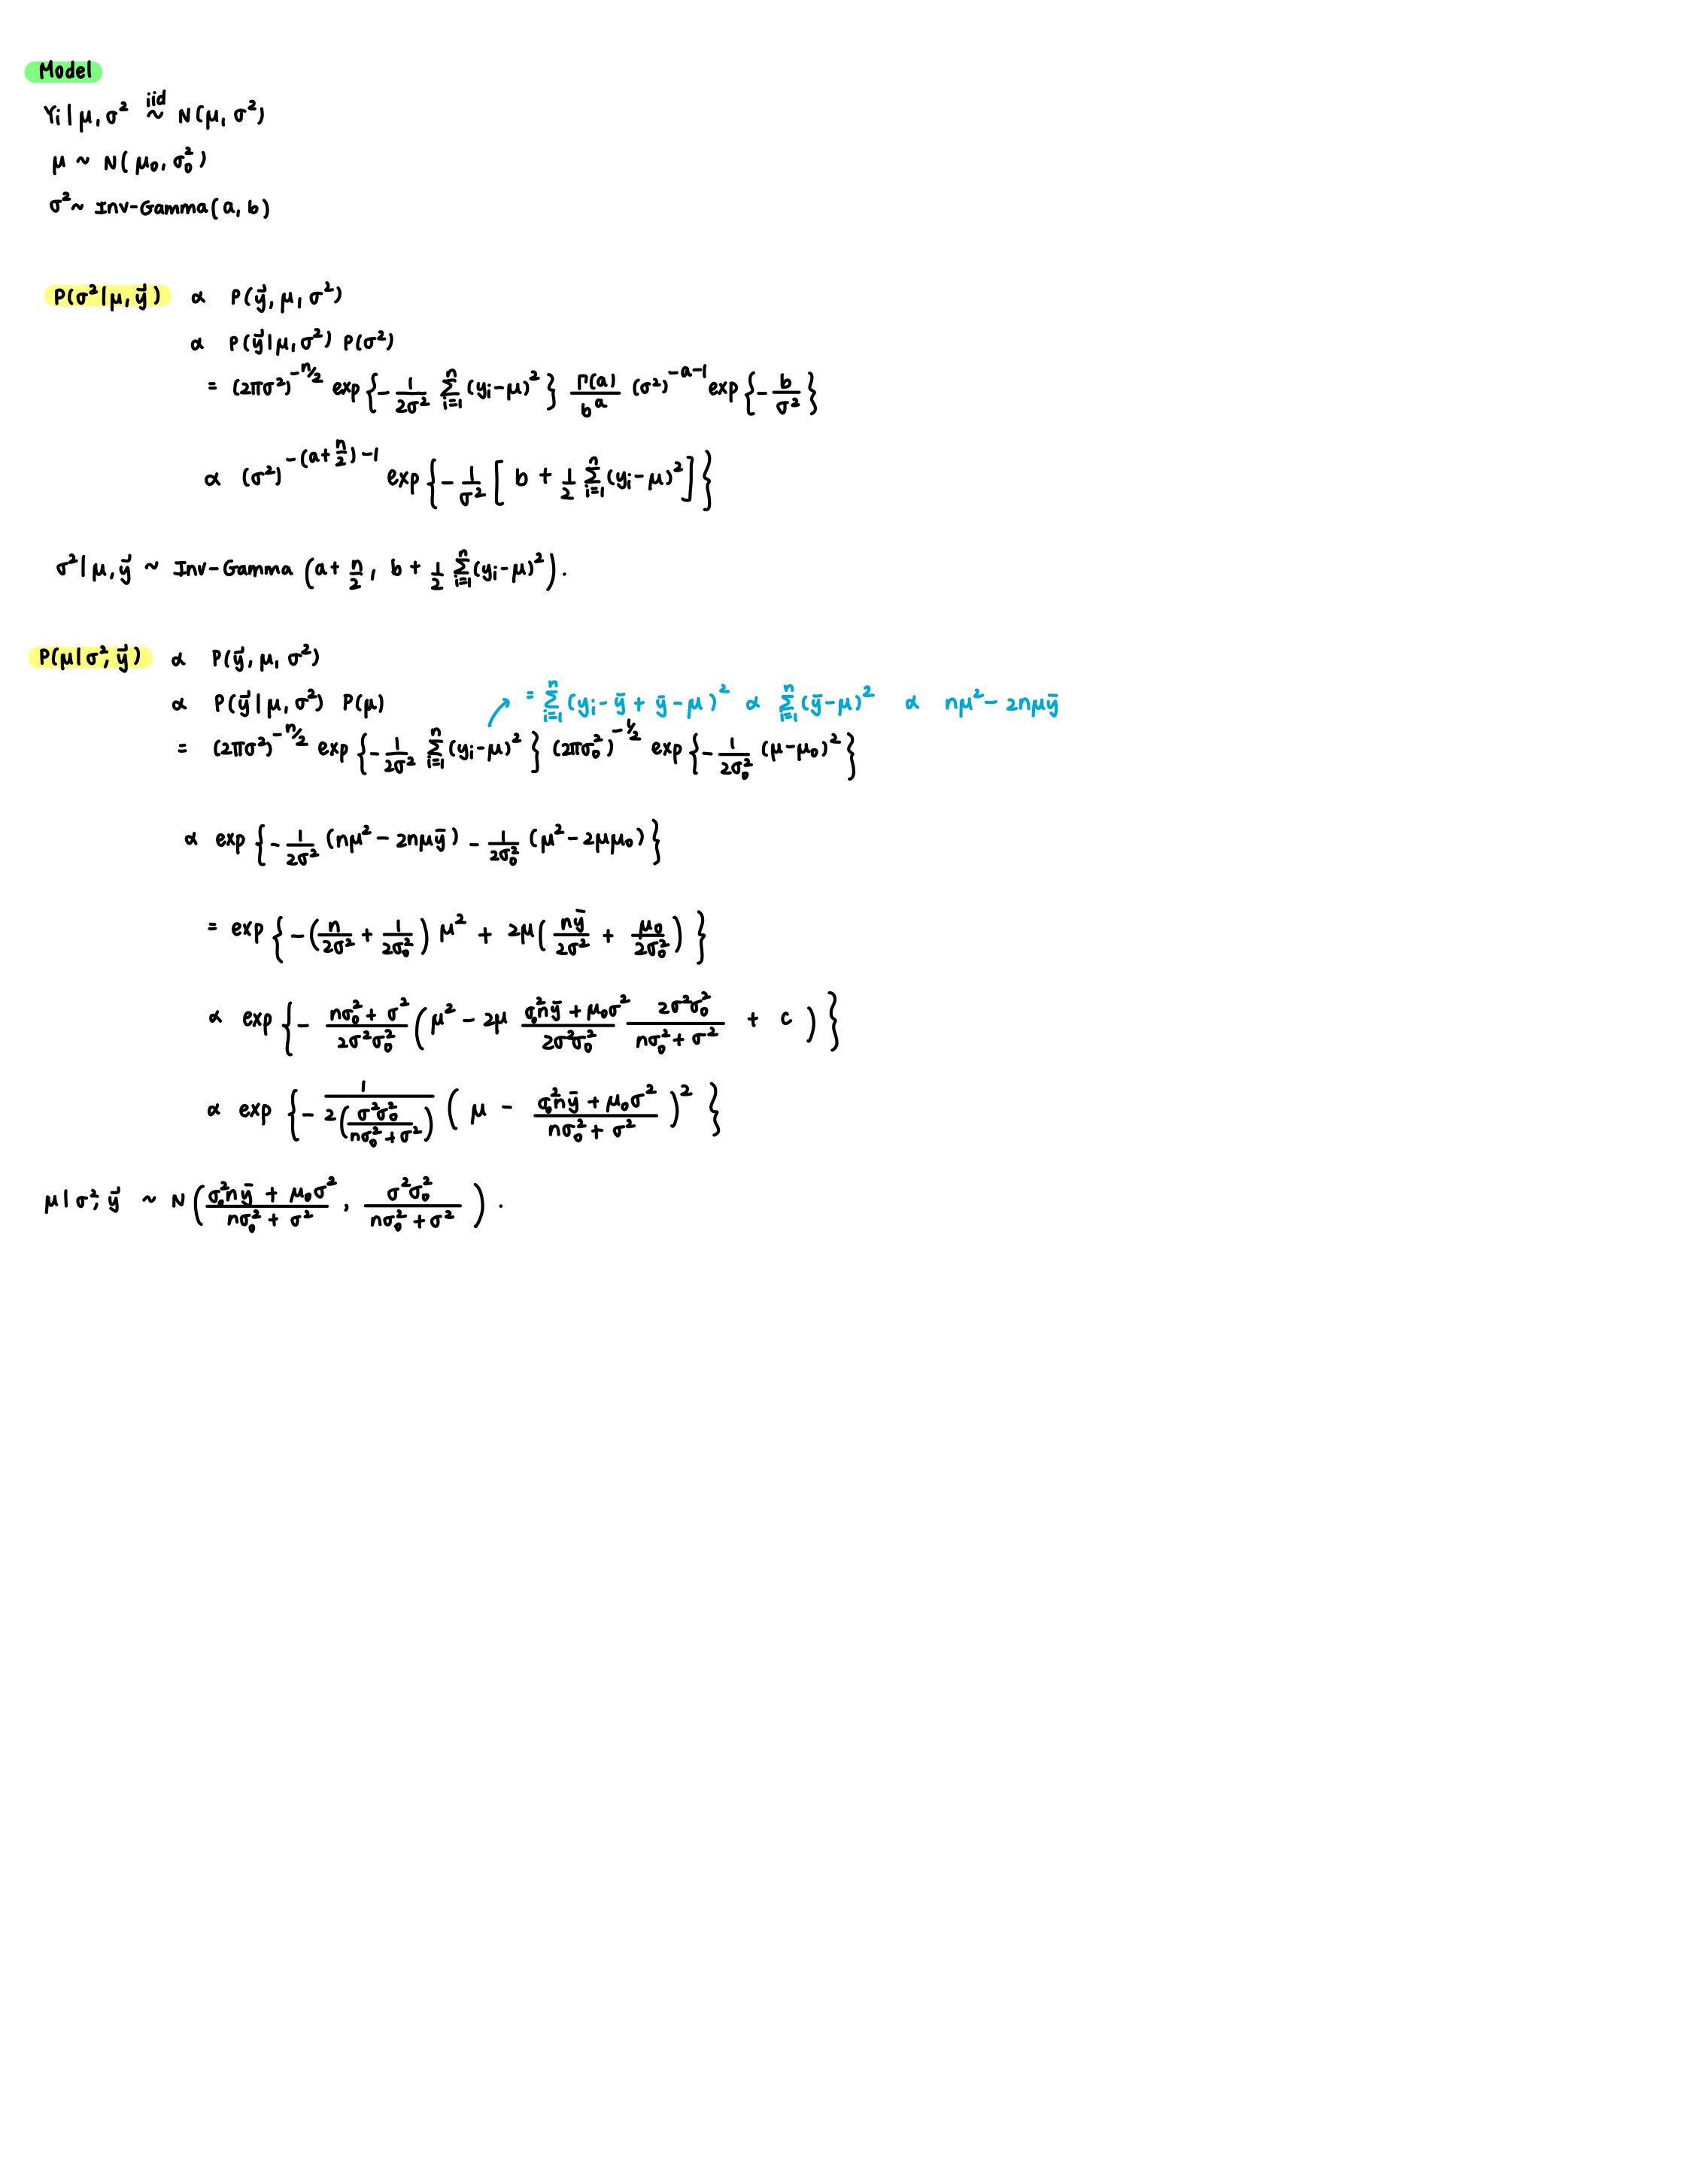 Model
Yi | μ, σ² iid ~ N(μ, σ²)
μ ~ N(μ₀, σ₀²)
σ² ~ Inv-Gamma(a, b)
P(σ² | μ, y⃗) ∝ P(y⃗, μ, σ²)
∝ P(y⃗ | μ, σ²) P(σ²)
= (2πσ²)^{-n/2} exp{-1/(2σ²) Σ_{i=1}^{n} (yᵢ-μ)²} Γ(a)/b^a (σ²)^{-a-1} exp{-b/σ²}
∝ (σ²)^{-(a+n/2)-1} exp{-1/σ² [b + 1/2 Σ_{i=1}^{n} (yᵢ-μ)²]}
σ² | μ, y⃗ ~ Inv-Gamma(a + n/2, b + 1/2 Σ_{i=1}^{n} (yᵢ-μ)²).
P(μ | σ², y⃗) ∝ P(y⃗, μ, σ²)
∝ P(y⃗ | μ, σ²) P(μ)
= Σ_{i=1}^{n} (yᵢ - ȳ + ȳ - μ)² ∝ Σ_{i=1}^{n} (ȳ-μ)² ∝ nμ² - 2nμȳ
= (2πσ²)^{-n/2} exp{-1/(2σ²) Σ_{i=1}^{n} (yᵢ-μ)²} (2πσ₀²)^{-1/2} exp{-1/(2σ₀²) (μ-μ₀)²}
∝ exp{-1/(2σ²) (nμ² - 2nμȳ) - 1/(2σ₀²) (μ² - 2μμ₀)}
= exp{-(n/(2σ²) + 1/(2σ₀²)) μ² + 2μ(nȳ/(2σ²) + μ₀/(2σ₀²))}
∝ exp{- (nσ₀² + σ²)/(2σ²σ₀²) (μ² - 2μ (σ₀²nȳ + μ₀σ²)/(2σ²σ₀²) (2σ²σ₀²)/(nσ₀² + σ²) + c)}
∝ exp{- 1/(2(σ²σ₀²/(nσ₀² + σ²))) (μ - (σ₀²nȳ + μ₀σ²)/(nσ₀² + σ²))²}
μ | σ², y⃗ ~ N((σ₀²nȳ + μ₀σ²)/(nσ₀² + σ²), σ²σ₀²/(nσ₀² + σ²)).